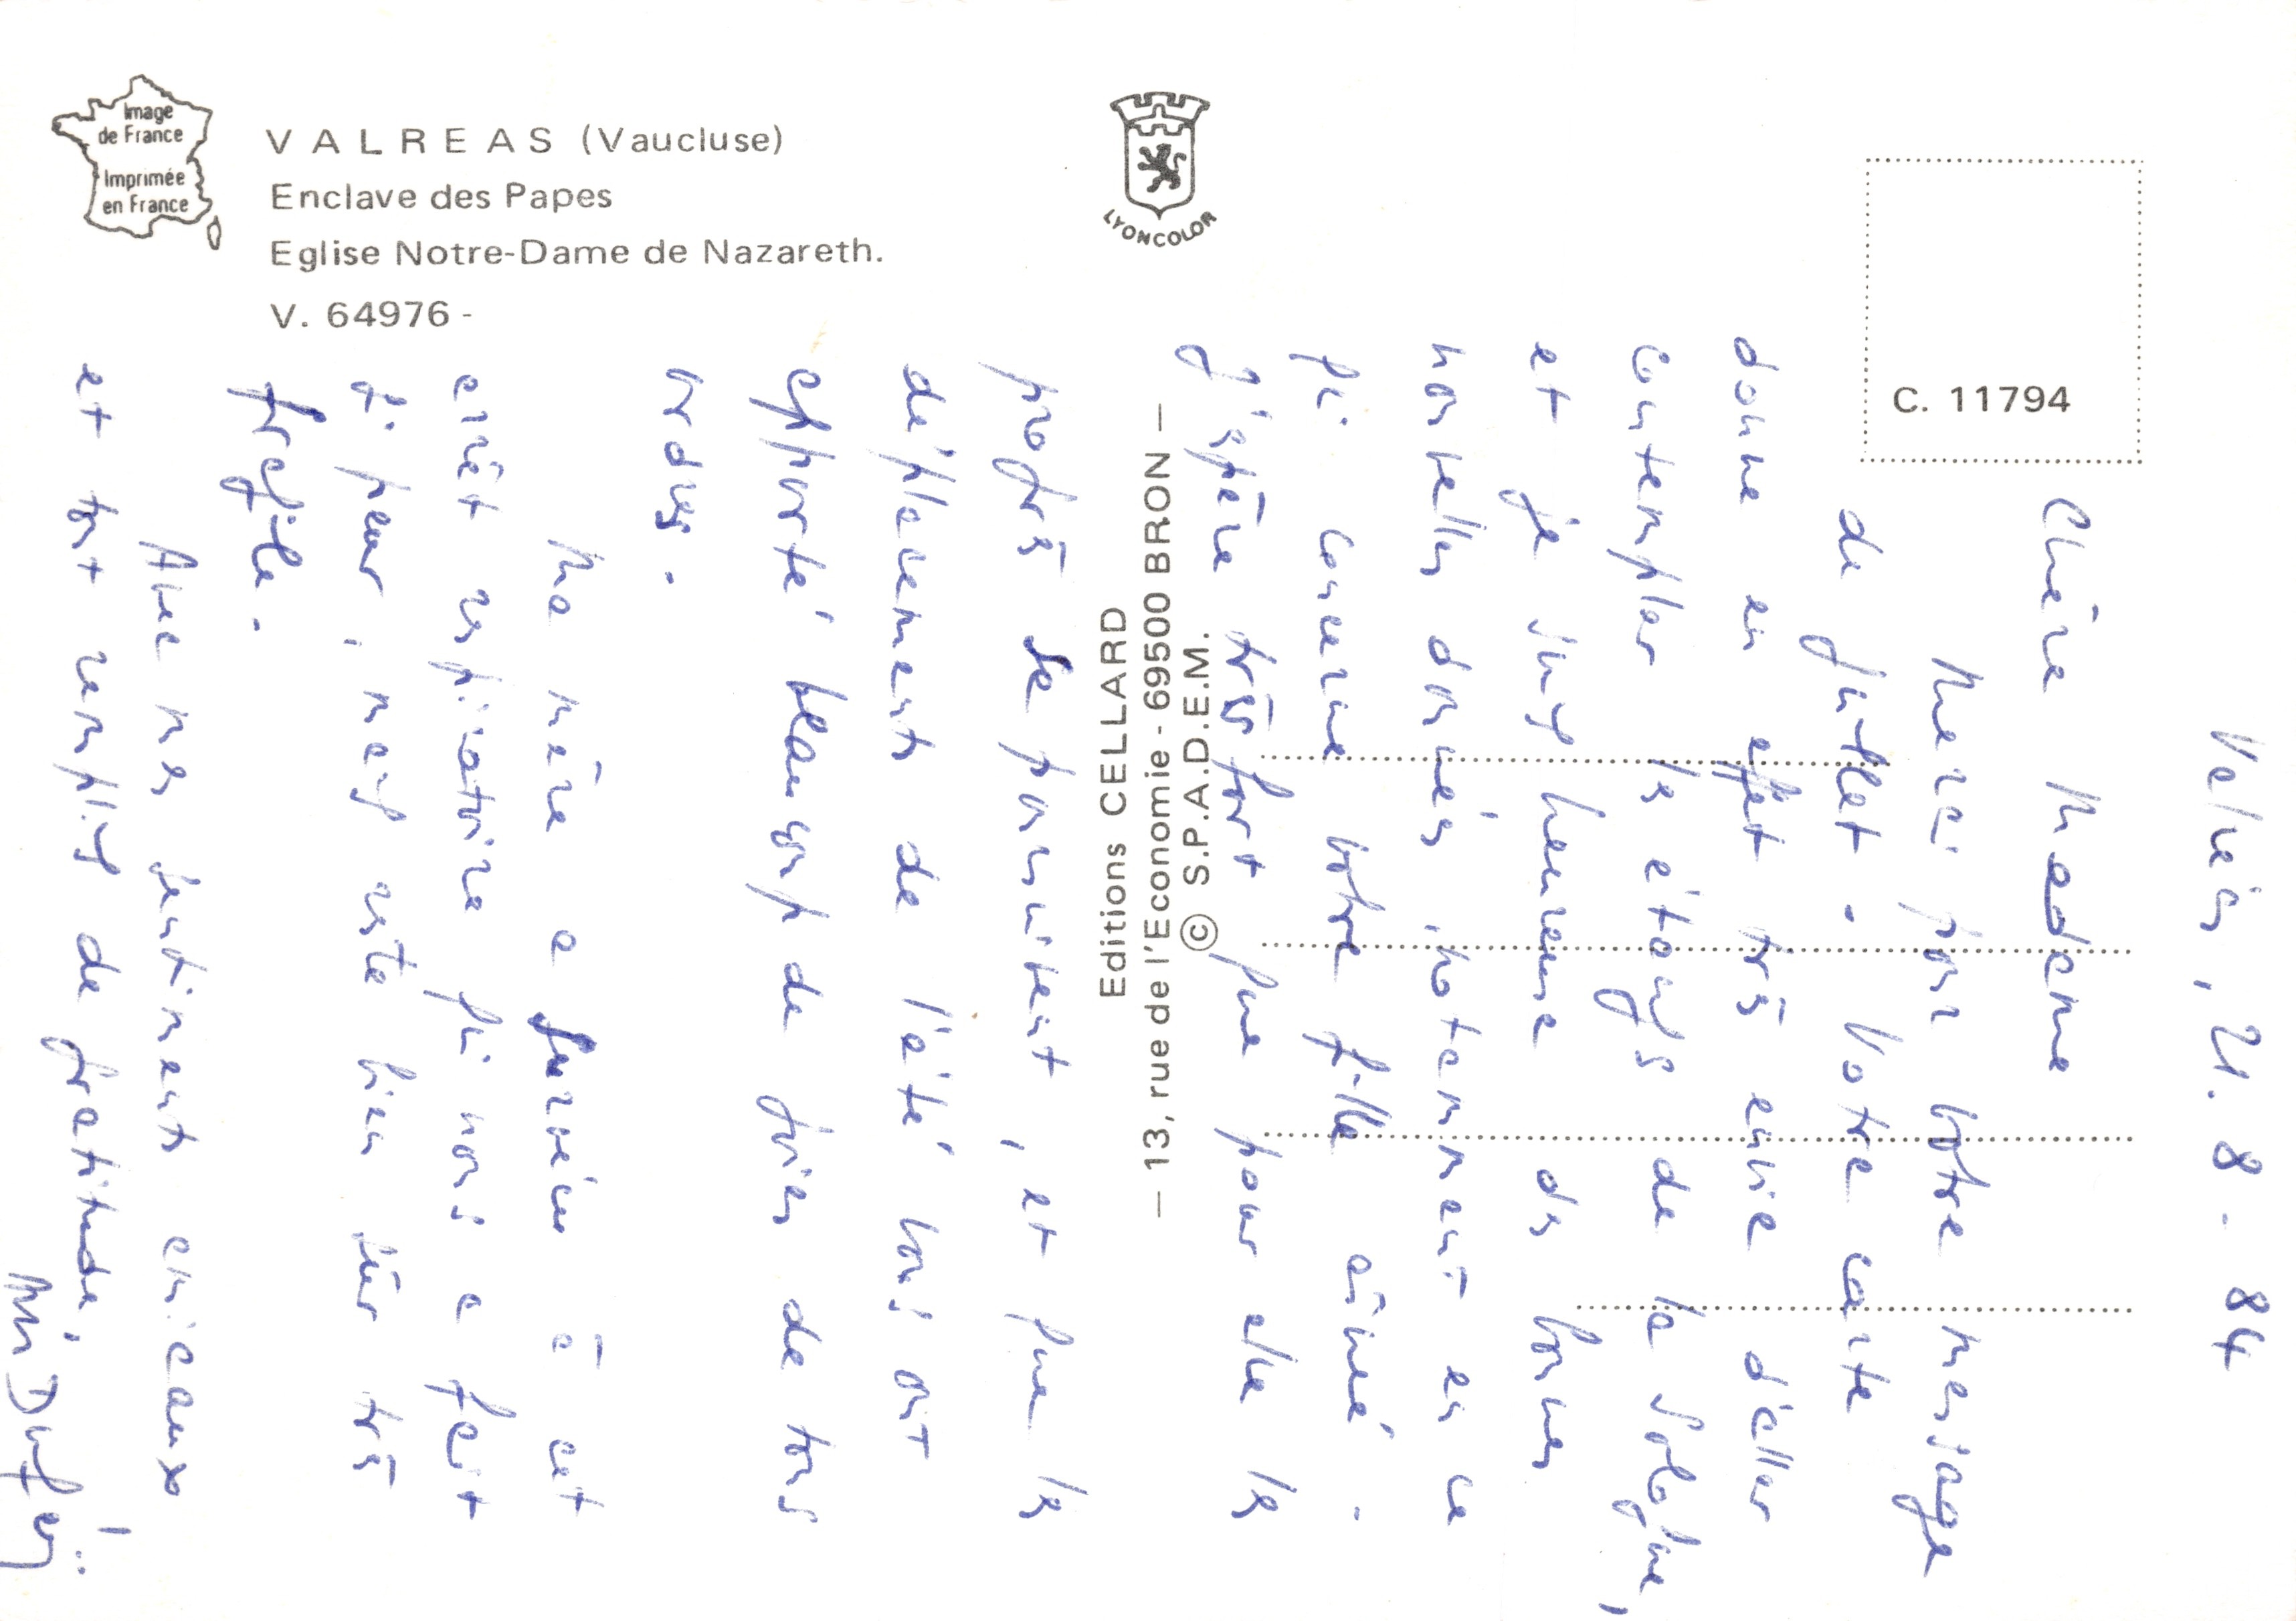 Image
de France
Imprimée
en France
VALREAS (Vaucluse)
Enclave des Papes
Eglise Notre-Dame de Nazareth.
V. 64976 -
LYONCOLOR
C. 11794
Editions CELLARD
— 13, rue de l'Economie - 69500 BRON —
© S.P.A.D.E.M.
Valréas, 21. 8. 84
Chère Madame
Merci pour votre message
de juillet. Votre carte
donne en effet très envie d'aller
contempler les étangs de la Sologne,
et je suis heureuse des bonnes
nouvelles données, notamment en ce
qui concerne votre fille aînée.
J'espère très fort que pour elle les
progrès se poursuivent, et que les
déplacements de l'été vous ont
apporté beaucoup de joies de tous
ordres.
Ma mère a survécu à cet
arrêt respiratoire qui nous a fait
si peur, mais reste bien sûr très
fragile.
Avec mes sentiments amicaux
et tout remplis de gratitude,